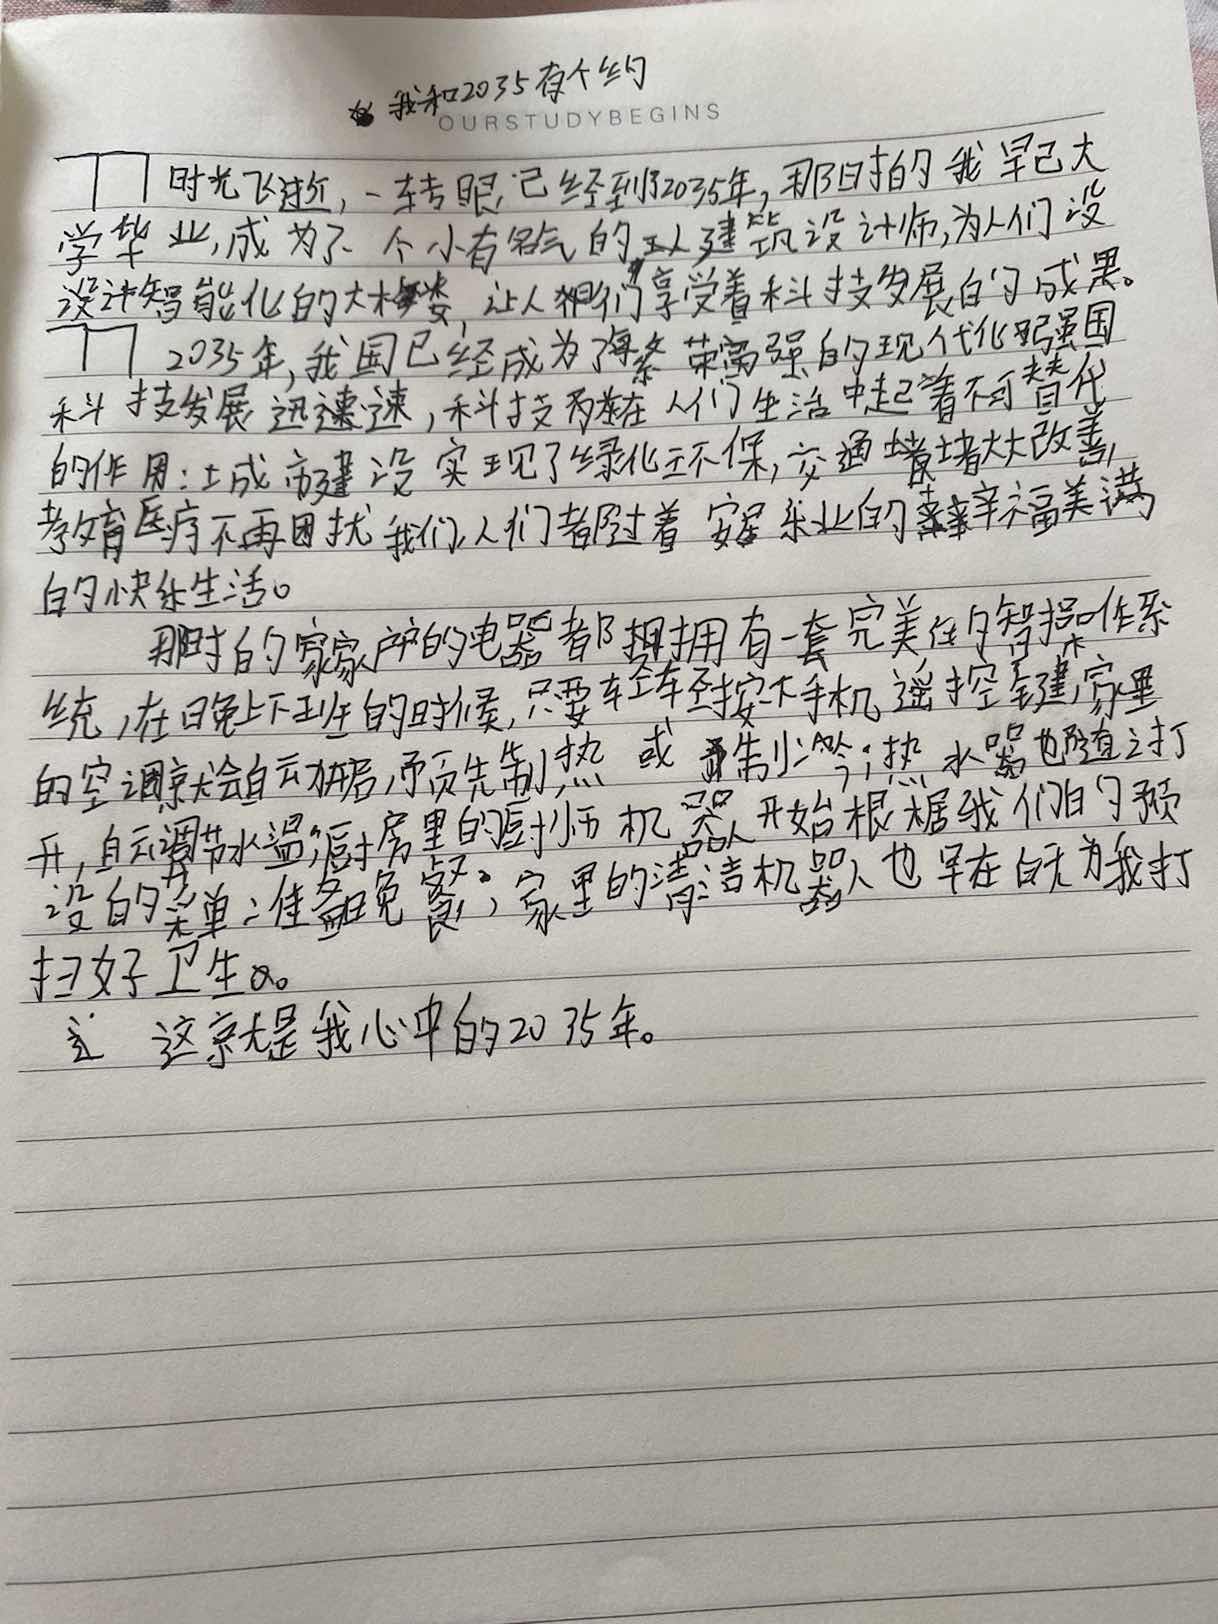 我和2035有个约
OURSTUDYBEGINS
时光飞逝,一转眼,已经到了2035年,那时的我早已大
学毕业,成为了个小有名气的建筑设计师,为人们设
设计智能化的大楼,让人们享受着科技发展的成果。
2035年,我国已经成为了繁荣富强的现代化强国
科技发展迅速,科技在人们生活中起着不可替代
的作用:城市建设实现了绿化环保,交通堵大大改善,
教育医疗不再困扰我们,人们都过着安居乐业的幸福美满
的快乐生活。
那时的家家户户的电器都拥有一套完美的智操作系
统,在日晚上下班的时候,只要轻轻按下手机遥控键,家里
的空调就会自动开启,预先制热或制冷;热水器也随之打
开,自动调节水温;厨房里的厨师机器人开始根据我们的预
设的菜单准备晚餐;家里的清洁机器人也早在白天为我打
扫好卫生。
这就是我心中的2035年。